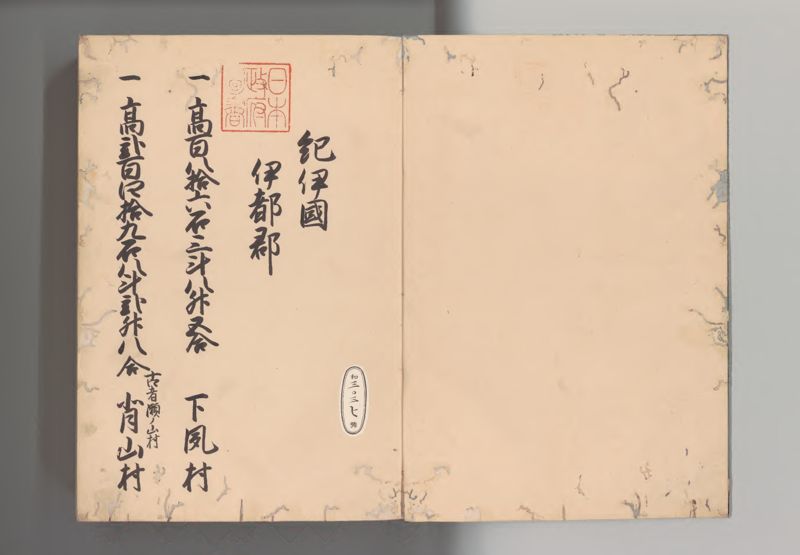 日本
政府
圖書
紀伊國
伊都郡
一 高百八拾六石二斗八升五合 下夙村
一 高弐百四拾九石八斗弐升八合 背山村
古者瀬ノ山村